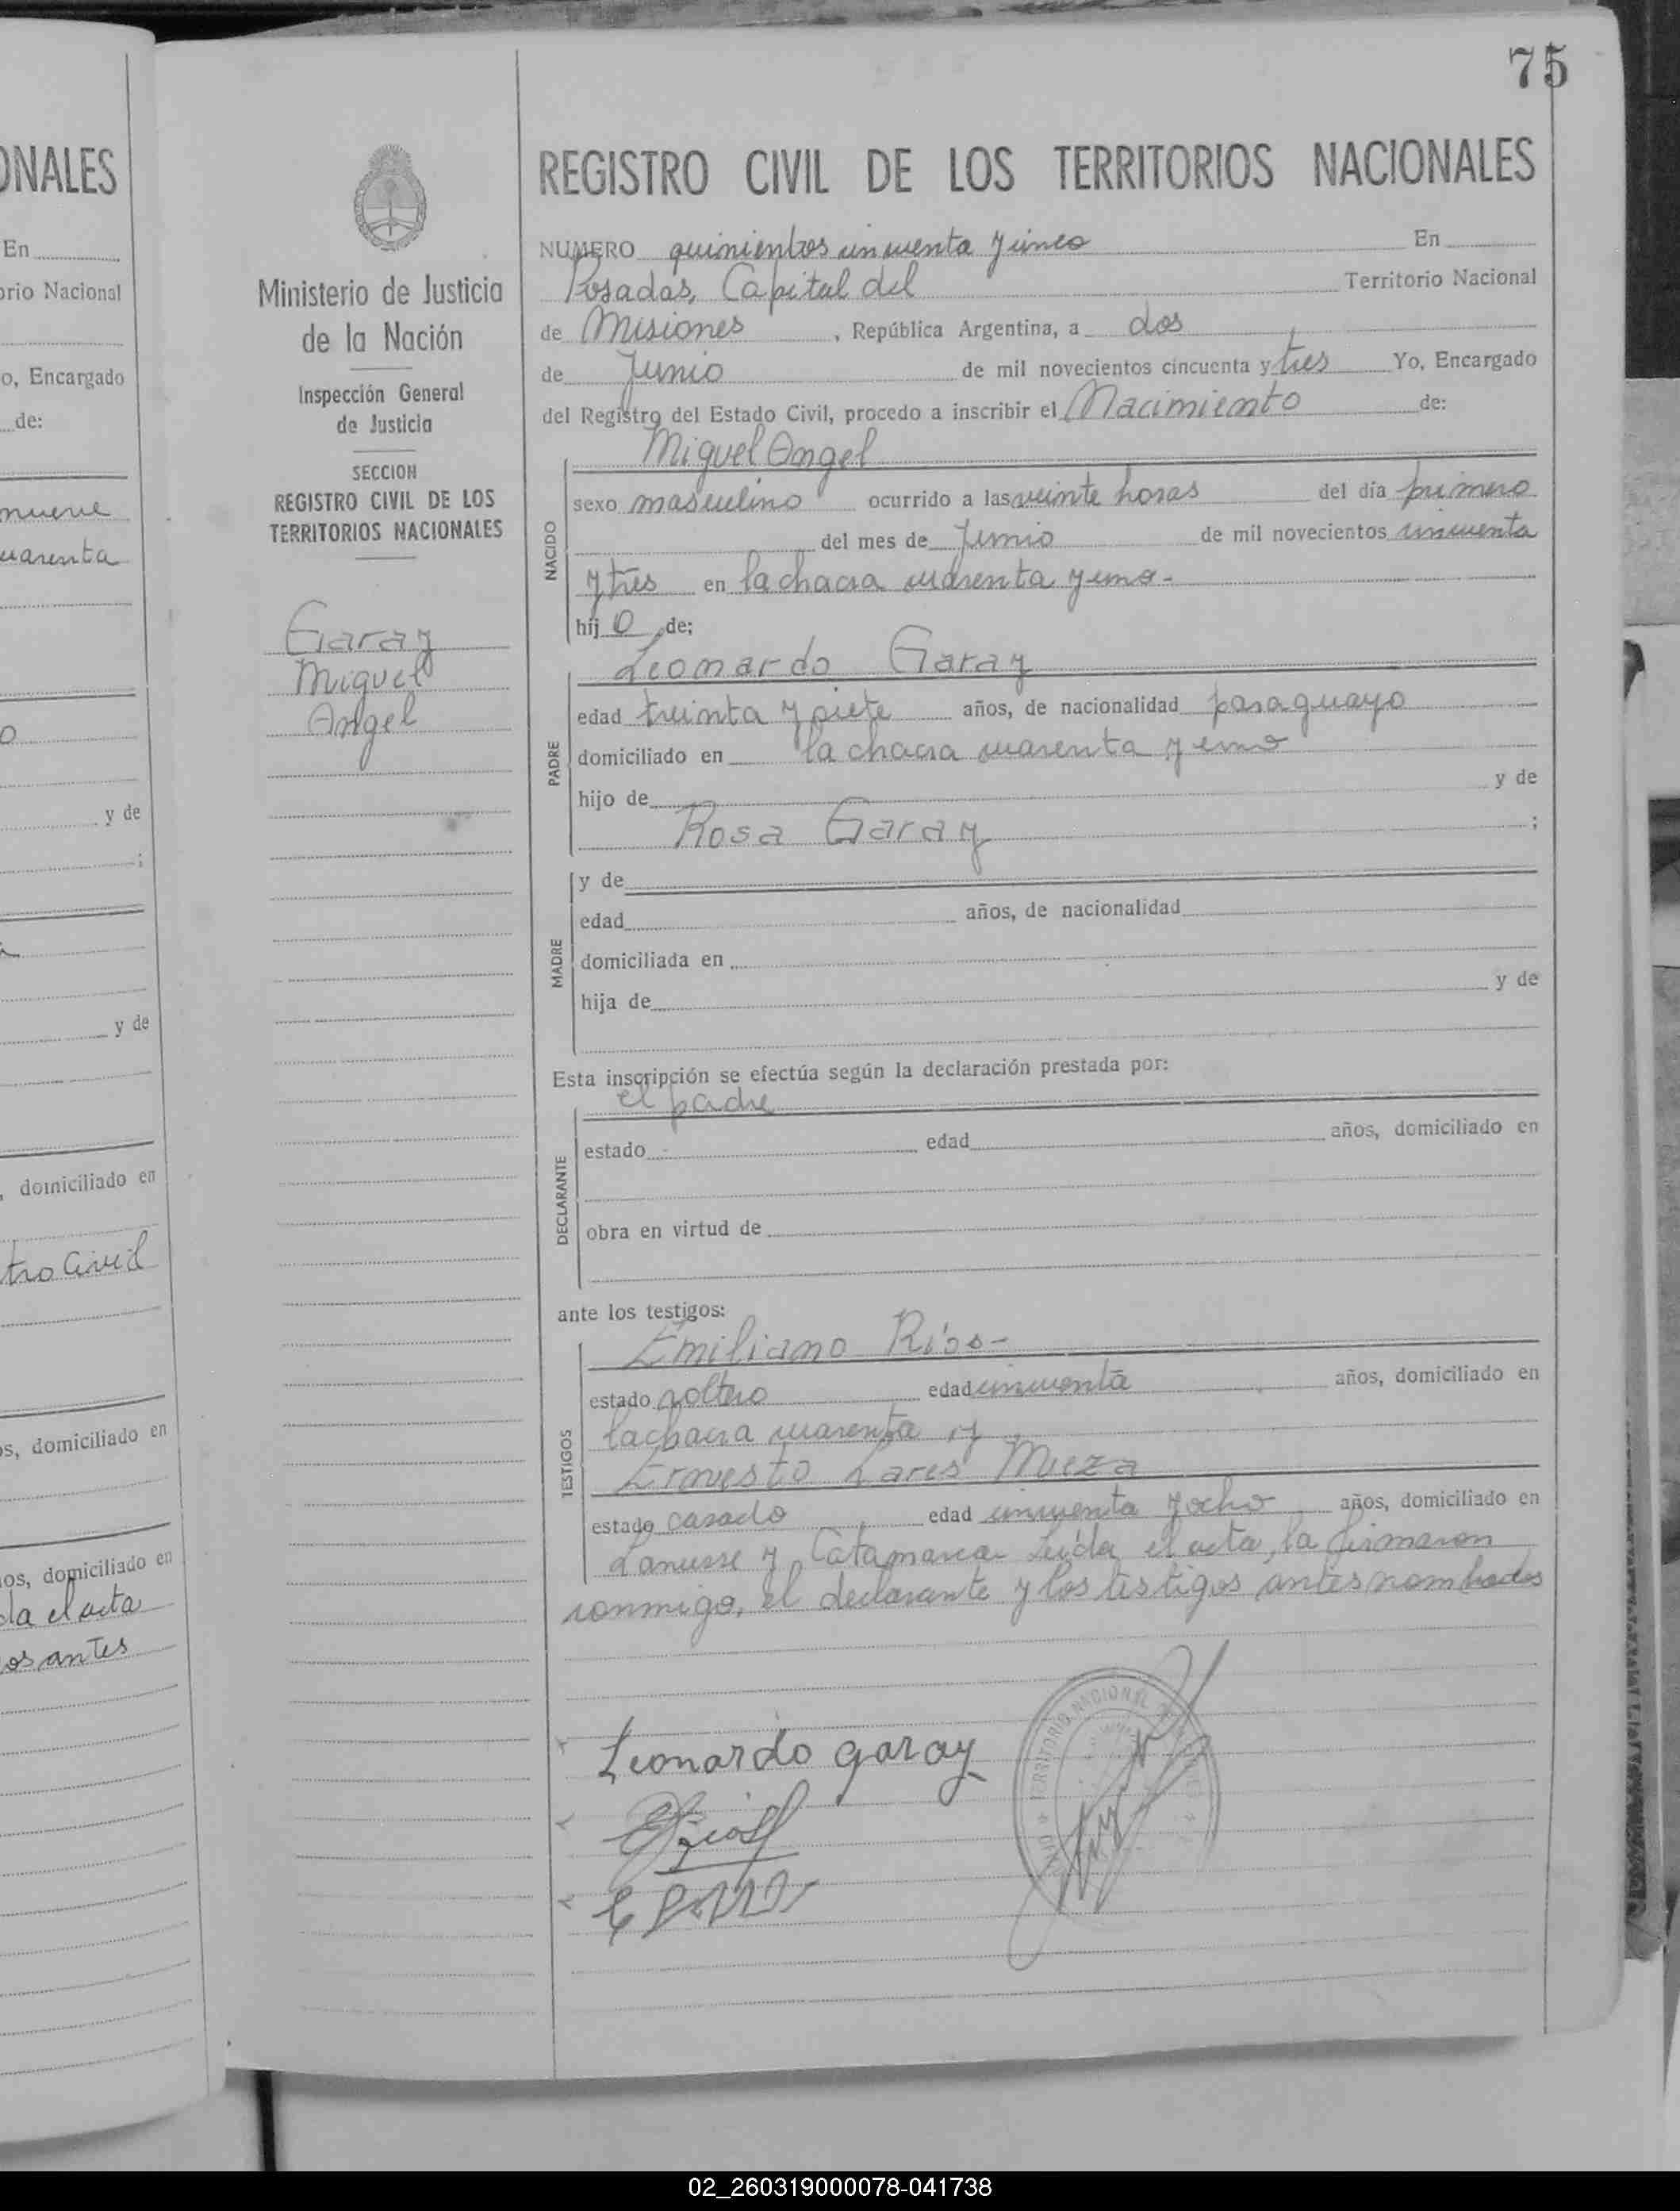 75
ONALES
En
orio Nacional
o, Encargado
de:
nueve
uarenta
o
y de
;
y de
, domiciliado en
tro Civil
os, domiciliado en
os, domiciliado en
da el acta
os antes
Ministerio de Justicia
de la Nación
Inspección General
de Justicia
SECCION
REGISTRO CIVIL DE LOS
TERRITORIOS NACIONALES
Garay
Miguel
Angel
REGISTRO CIVIL DE LOS TERRITORIOS NACIONALES
NUMERO quinientos cincuenta y cinco En
Posadas, Capital del Territorio Nacional
de Misiones, República Argentina, a dos
de Junio de mil novecientos cincuenta y tres Yo, Encargado
del Registro del Estado Civil, procedo a inscribir el Nacimiento de:
Miguel Angel
NACIDO
sexo masculino ocurrido a las veinte horas del día primero
del mes de Junio de mil novecientos cincuenta
y tres en la chacra cuarenta y uno-
hij o de;
Leonardo Garay
PADRE
edad treinta y siete años, de nacionalidad paraguayo
domiciliado en la chacra cuarenta y uno
hijo de y de
Rosa Garay ;
MADRE
y de
edad años, de nacionalidad
domiciliada en
hija de y de
Esta inscripción se efectúa según la declaración prestada por:
el padre
DECLARANTE
estado edad años, domiciliado en
obra en virtud de
ante los testigos:
Emiliano Ríos-
TESTIGOS
estado soltero edad cincuenta años, domiciliado en
la chacra cuarenta y
Ernesto Lares Meza
estado casado edad cincuenta y ocho años, domiciliado en
Lanusse y Catamarca Leída el acta, la firmaron
conmigo, el declarante y los testigos antes nombrados
TERRITORIO NACIONAL
Leonardo garay
02_260319000078-041738